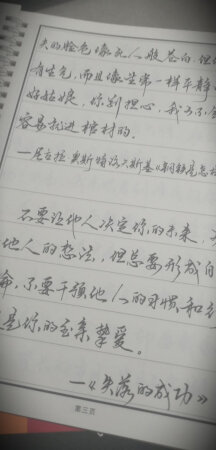 夫的脸色像死人般苍白,但
有生气,而且像往常一样平静
好姑娘,你别担心,我可不会
容易就进棺材的。
—尼古拉·奥斯特洛夫斯基《钢铁是怎
不要让他人决定你的未来,
他人的想法,但总要形成自
命,不要干预他人的习惯和
是你的至亲挚爱。
—《失落的成功》
第三页